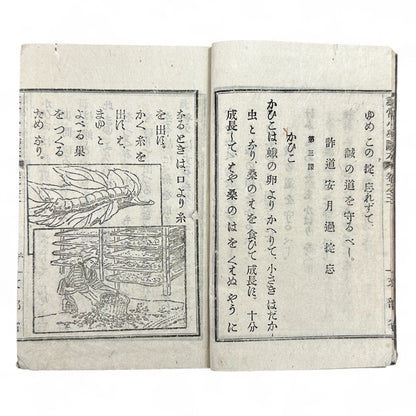 ゆめ この掟、忘れずて、
誠の道を守るべし。
詐 道 安 月 過 掟 忘
第三課
かひこ
かひこは、蛾の卵よりかへりて、小さきはだか
虫となり、桑のはを食ひて成長し、十分
成長して、もや桑のはをくえぬやうに
なるときは、口より糸
を出し、
かく糸を
出して、
まゆと
よべる巣
をつくる
ためなり。